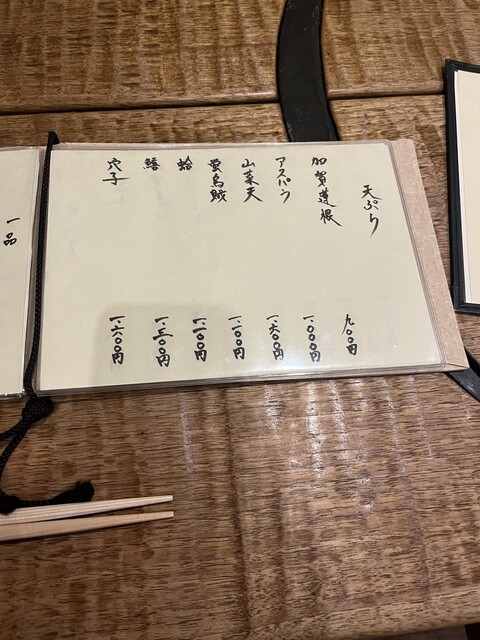 天ぷら
加賀蓮根 九〇〇円
アスパラ 一、〇〇〇円
山菜天 一、六〇〇円
螢烏賊 一、一〇〇円
蛤 一、一〇〇円
鱚 一、三〇〇円
穴子 一、六〇〇円
一品